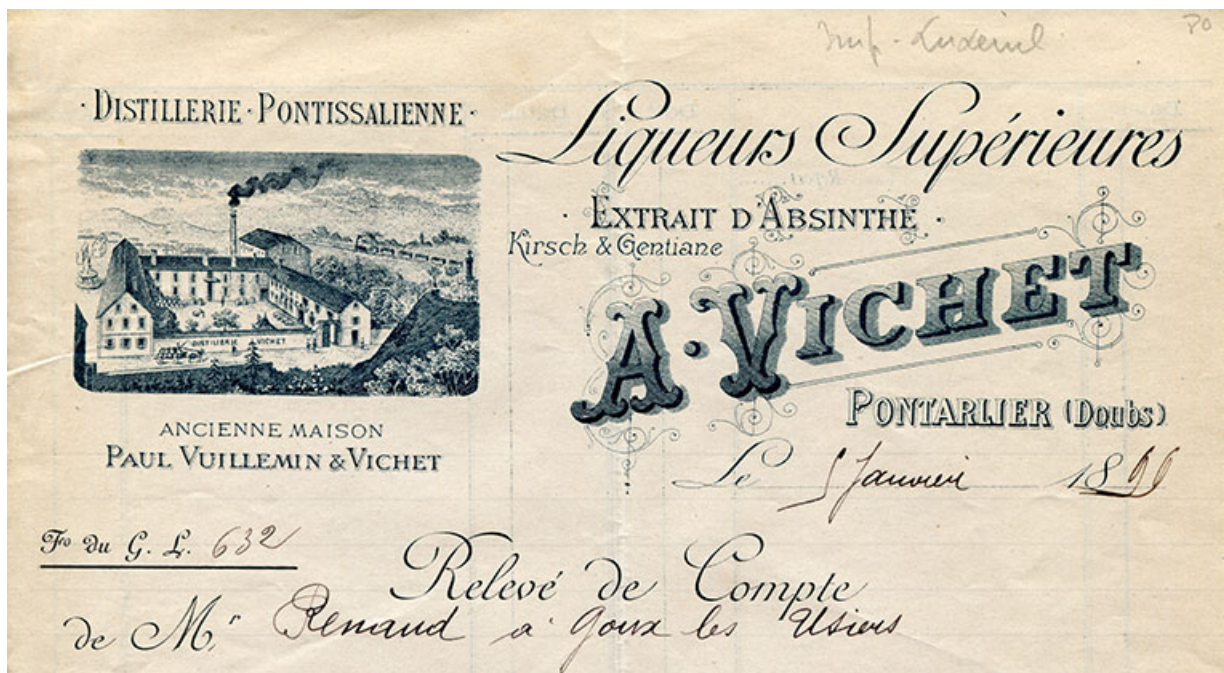 · DISTILLERIE · PONTISSALIENNE ·
DISTILLERIE A VICHET
ANCIENNE MAISON
PAUL VUILLEMIN & VICHET
Liqueurs Supérieures
· EXTRAIT D'ABSINTHE ·
Kirsch & Gentiane
A. VICHET
PONTARLIER (Doubs)
Le 5 Janvier 1899
Fo du G. L. 632
Relevé de Compte
de Mr Renaud a Goux les Usiers